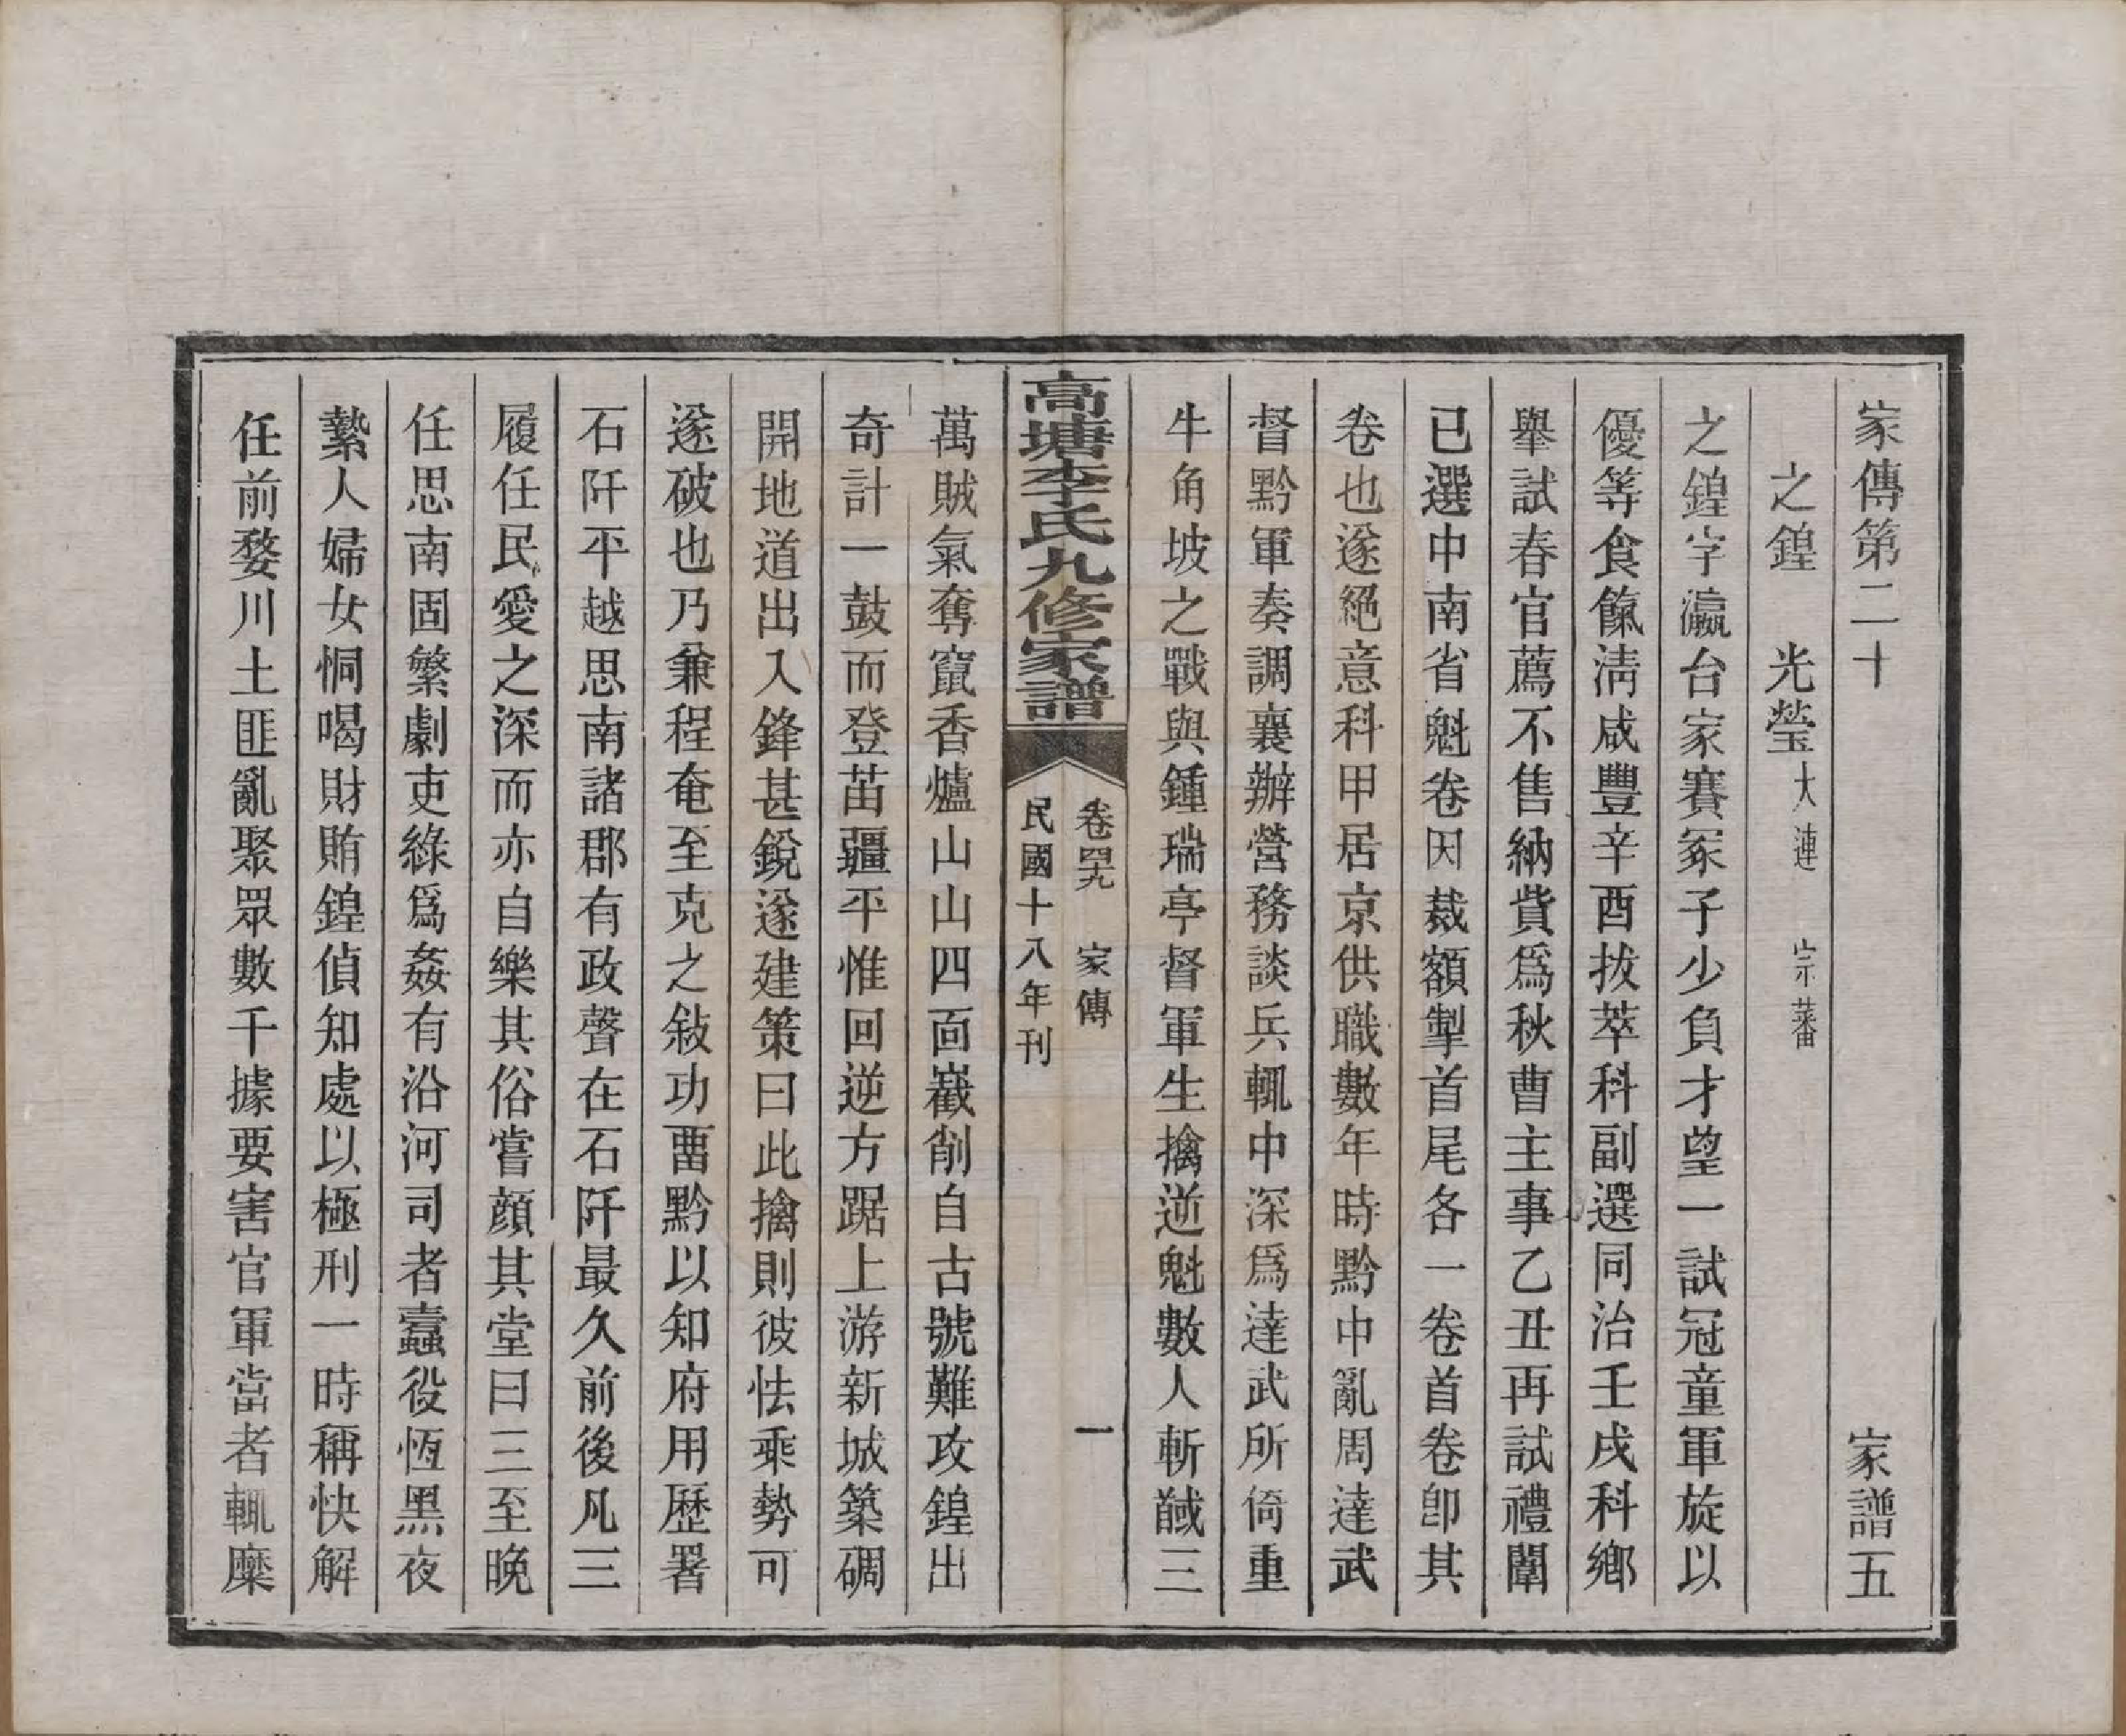 家傳第二十　家譜五
之鍠　光瑩大漣　宗蕃
之鍠字瀛台家賽冢子少負才望一試冠童軍旋以
優等食餼淸咸豐辛酉拔萃科副選同治壬戌科鄉
舉試春官薦不售納貲爲秋曹主事乙丑再試禮闈
已選中南省魁卷因裁額掣首尾各一卷首卷卽其
卷也遂絕意科甲居京供職數年時黔中亂周達武
督黔軍奏調襄辦營務談兵輒中深爲達武所倚重
牛角坡之戰與鍾瑞亭督軍生擒逆魁數人斬馘三
高塘李氏九修家譜
卷四九　家傳　一
民國十八年刊
萬賊氣奪竄香爐山山四面巀削自古號難攻鍠出
奇計一鼓而登苗疆平惟回逆方踞上游新城築碉
開地道出入鋒甚銳遂建策曰此擒則彼怯乘勢可
遂破也乃兼程奄至克之敍功畱黔以知府用歷署
石阡平越思南諸郡有政聲在石阡最久前後凡三
履任民愛之深而亦自樂其俗嘗顔其堂曰三至晚
任思南固繁劇吏緣爲姦有沿河司者蠧役恆黑夜
縶人婦女恫喝財賄鍠偵知處以極刑一時稱快解
任前婺川土匪亂聚眾數千據要害官軍當者輒糜